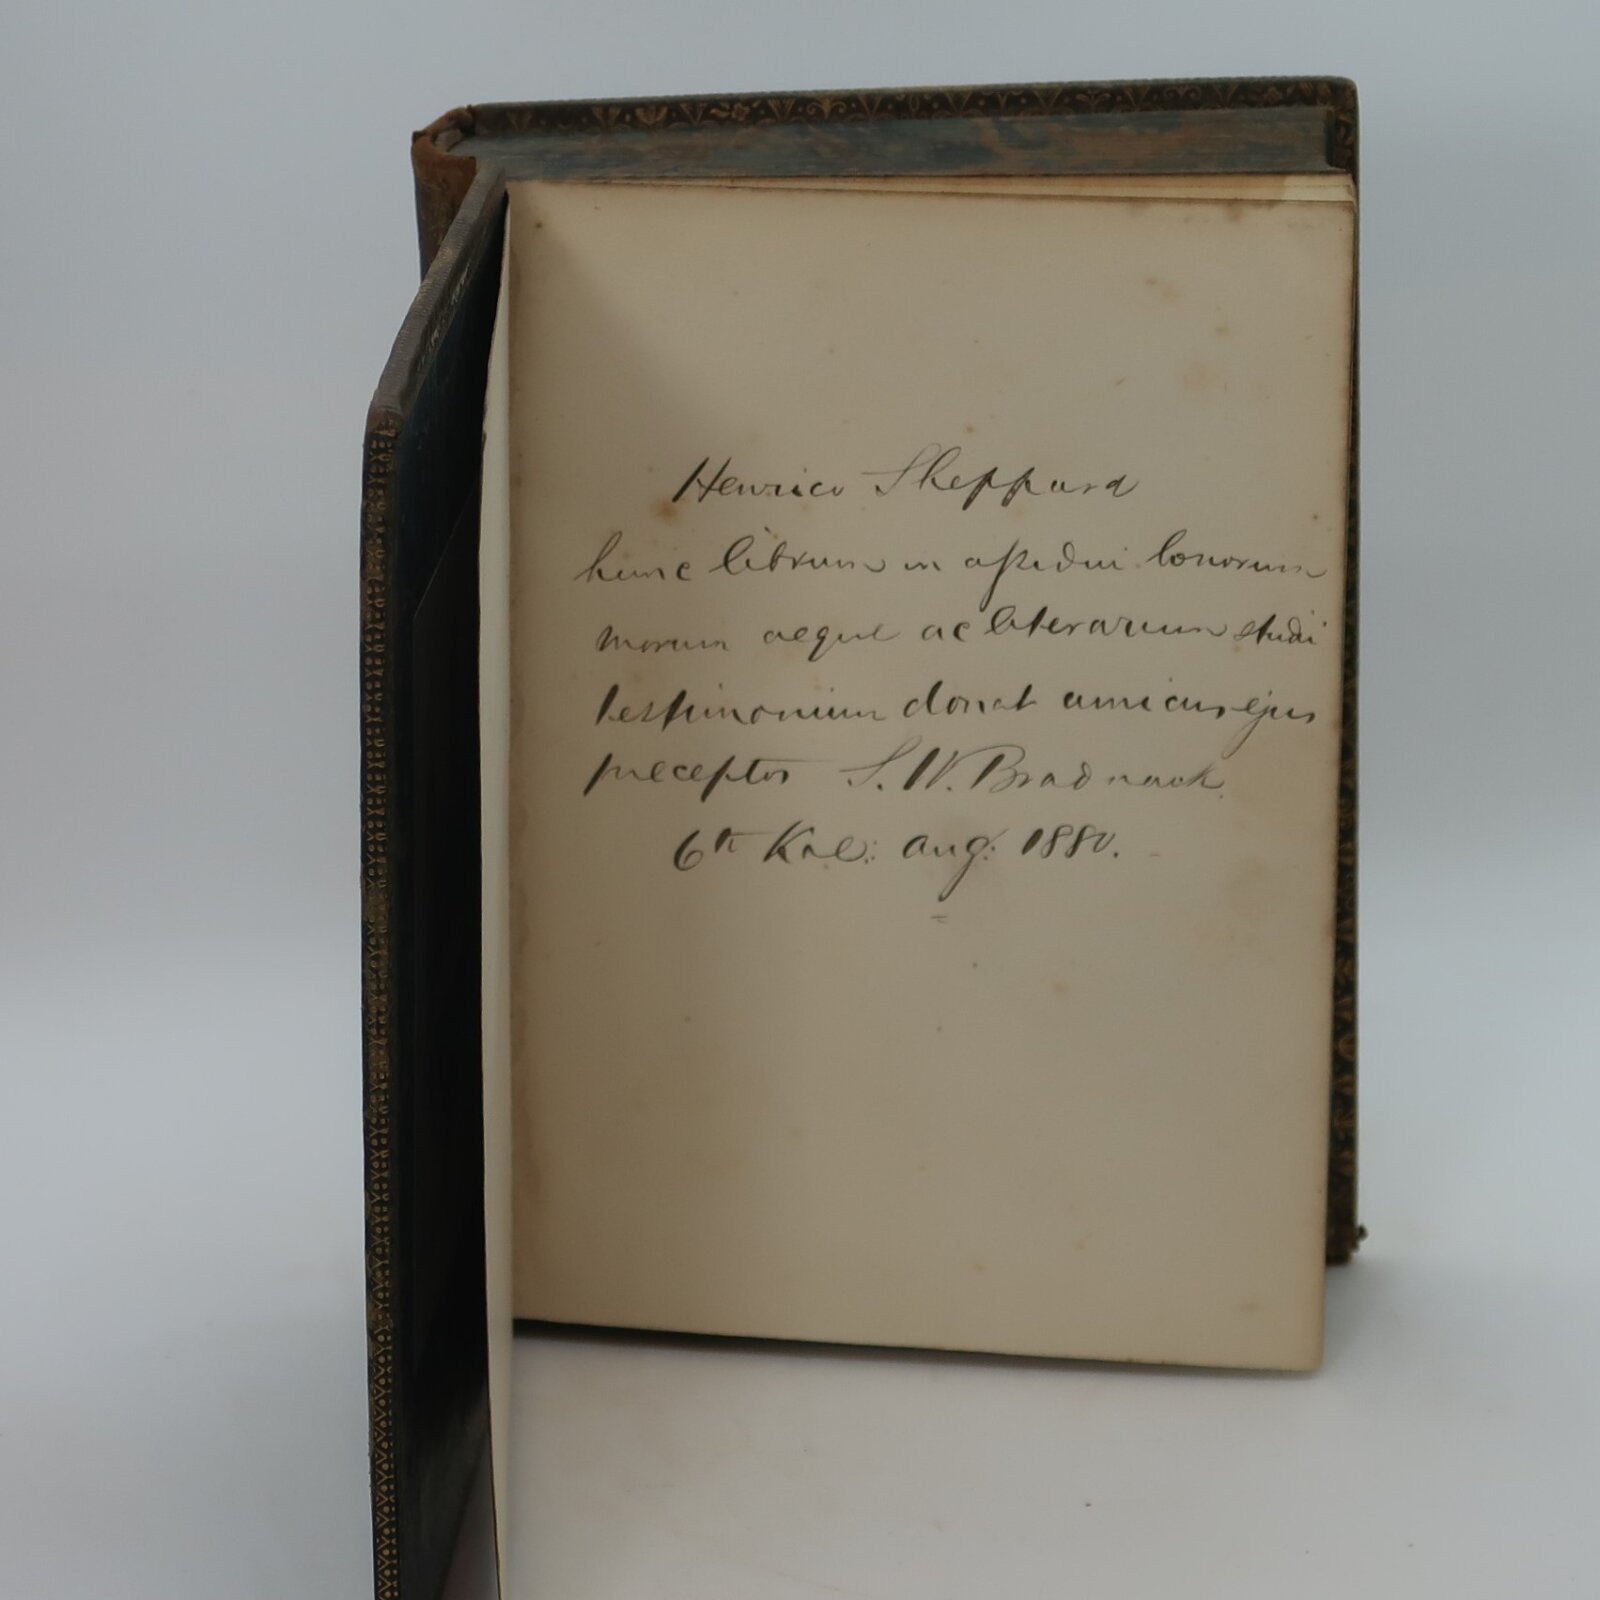 Henrico Sheppard
hunc librum in assidui bonorum
morum aeque ac literarum studi
testimonium donat amicus ejus
preceptor S. W. Bradnack.
6th Kal: Aug: 1880.